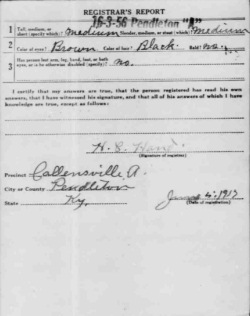 REGISTRAR'S REPORT
16-3-56 Pendleton "A"
1 Tall, medium, or short (specify which)? Medium Slender, medium, or stout (which)? Medium
2 Color of eyes? Brown Color of hair? Black Bald? No.
3 Has person lost arm, leg, hand, foot, or both eyes, or is he otherwise disabled (specify)? No.
I certify that my answers are true, that the person registered has read his own answers, that I have witnessed his signature, and that all of his answers of which I have knowledge are true, except as follows:
(Signature of registrar)
Precinct Callensville A.
City or County Pendleton
State Ky.
4, 1917
(Date of registration)